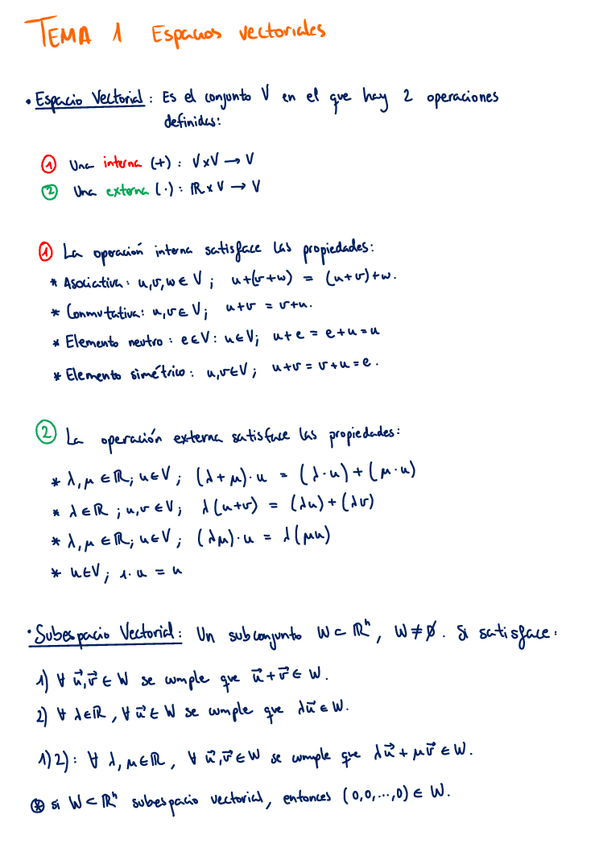 TEMA 1 Espacios vectoriales
• Espacio Vectorial: Es el conjunto V en el que hay 2 operaciones
definidas:
① Una interna (+): V×V → V
② Una externa (·): ℝ×V → V
① La operación interna satisface las propiedades:
* Asociativa: u,v,w ∈ V; u+(v+w) = (u+v)+w.
* Conmutativa: u,v ∈ V; u+v = v+u.
* Elemento neutro: e∈V: u∈V; u+e = e+u=u
* Elemento simétrico: u,v∈V; u+v = v+u = e.
② La operación externa satisface las propiedades:
* λ,μ ∈ ℝ; u∈V; (λ+μ)·u = (λ·u)+(μ·u)
* λ∈ℝ; u,v ∈V; λ(u+v) = (λu)+(λv)
* λ,μ ∈ℝ; u∈V; (λμ)·u = λ(μu)
* u∈V; 1·u = u
• Subespacio Vectorial: Un subconjunto W⊂ ℝⁿ, W≠∅. Si satisface:
1) ∀ u⃗,v⃗ ∈ W se cumple que u⃗+v⃗ ∈ W.
2) ∀ λ∈ℝ, ∀ u⃗ ∈ W se cumple que λu⃗ ∈ W.
1)2): ∀ λ,μ∈ℝ, ∀ u⃗,v⃗ ∈W se cumple que λu⃗ + μv⃗ ∈ W.
⊛ si W⊂ℝⁿ subespacio vectorial, entonces (0,0,...,0) ∈ W.